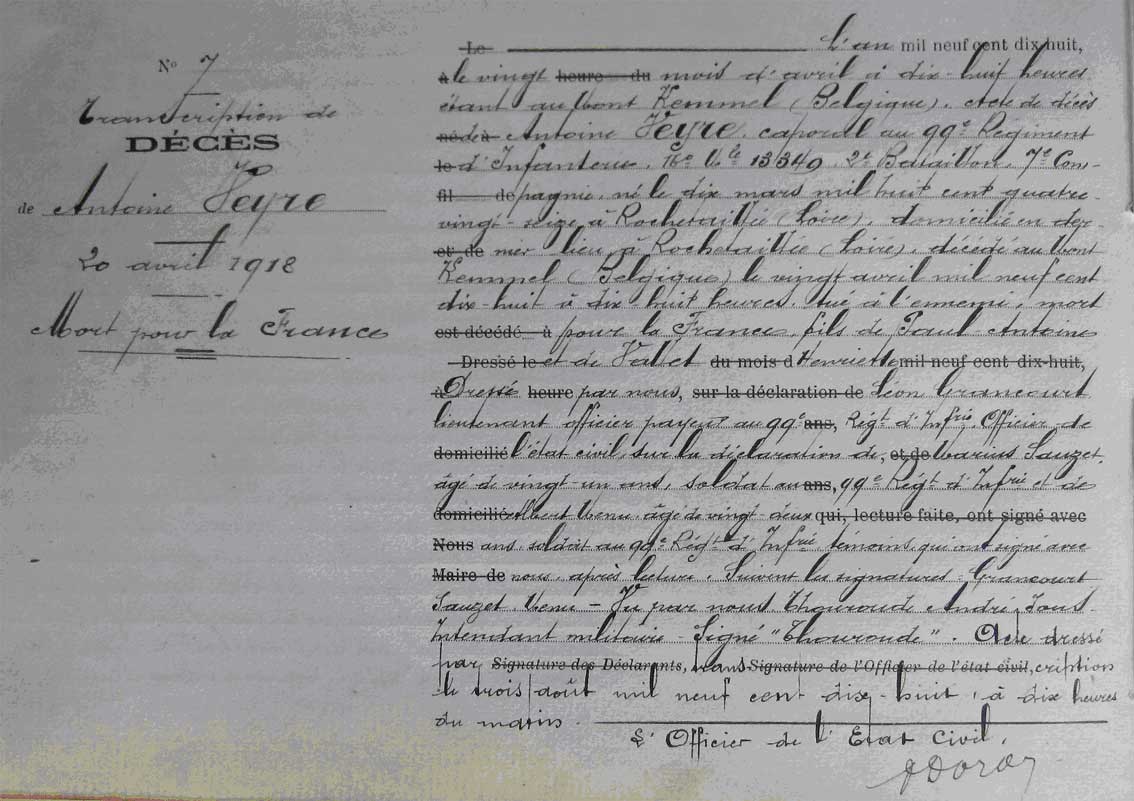 N° 7
Transcription de
DÉCÈS
de Antoine Veyre
20 avril 1918
Mort pour la France
Le L'an mil neuf cent dix-huit,
à le vingt heure du mois d'avril à dix-huit heures
étant au Mont Kemmel (Belgique). Acte de décès
né de à Antoine Veyre. caporal au 99e Régiment
le d'Infanterie. No Mle 13349. 2e Bataillon. 7e Com-
fil de pagnie, né le dix mars mil huit cent quatre
vingt-seize à Rochetaillée (Loire), domicilié en der-
et de nier lieu à Rochetaillée (Loire). décédé au Mont
Kemmel (Belgique) le vingt avril mil neuf cent
dix-huit à dix-huit heures. tué à l'ennemi, mort
est décédé à pour la France, fils de Paul Antoine
Dressé le et de Vallet du mois d Henriette mil neuf cent dix-huit,
à Dressé heure par nous, sur la déclaration de Léon Grancourt
lieutenant officier payeur au 99e ans, Régt d'Infrie Officier de
domicilié l'état civil, sur la déclaration de, et de Marius Sauzet,
âgé de vingt-un ans, soldat au ans, 99e Régt d'Infrie et de
domicilié Albert Venu âgé de vingt-deux qui, lecture faite, ont signé avec
Nous ans soldat au 99e Régt d'Infrie témoins qui ont signé avec
Maire de nous, après lecture. Suivent les signatures: Grancourt
Sauzet. Venu – Vu par nous Thouroude André, Sous-
Intendant militaire – Signé "Thouroude". Acte dressé
par Signature des Déclarants, trans Signature de l'Officier de l'état civil, cription
le trois août mil neuf cent dix-huit, à dix heures
du matin.
L'Officier de l'Etat Civil,